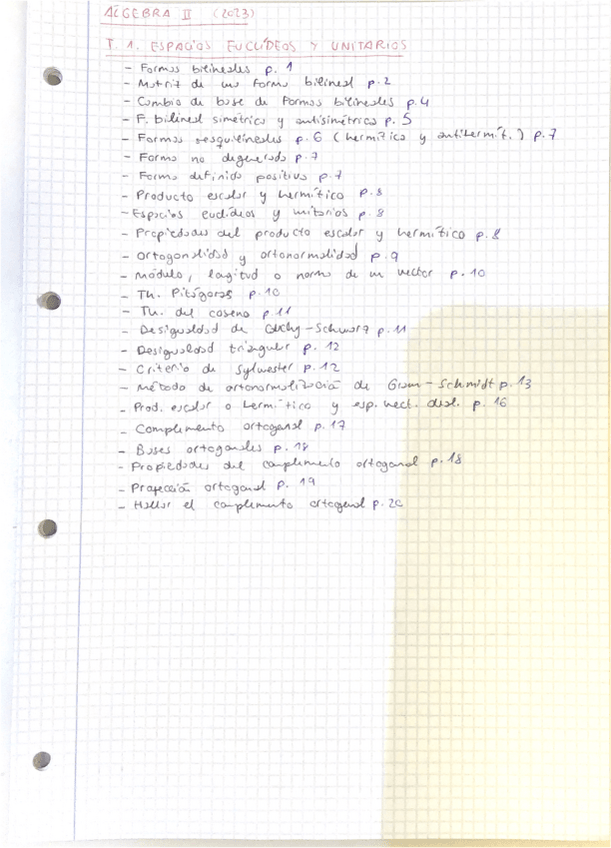 ÁLGEBRA II (2023)
T. 1. ESPACIOS EUCLÍDEOS Y UNITARIOS
- Formas bilineales p. 1
- Matriz de una forma bilineal p. 2
- Cambio de base de formas bilineales p. 4
- F. bilineal simétrica y antisimétrica p. 5
- Formas sesquilineales p. 6 (hermítica y antihermít.) p. 7
- Forma no degenerada p. 7
- Forma definida positiva p. 7
- Producto escalar y hermítico p. 8
- Espacios euclídeos y unitarios p. 8
- Propiedades del producto escalar y hermítico p. 8
- Ortogonalidad y ortonormalidad p. 9
- Módulo, longitud o norma de un vector p. 10
- Th. Pitágoras p. 10
- Th. del coseno p. 11
- Desigualdad de Cauchy-Schwarz p. 11
- Desigualdad triangular p. 12
- Criterio de Sylvester p. 12
- Método de ortonormalización de Gram-Schmidt p. 13
- Prod. escalar o hermítico y esp. vect. dual. p. 16
- Complemento ortogonal p. 17
- Bases ortogonales p. 18
- Propiedades del complemento ortogonal p. 18
- Proyección ortogonal p. 19
- Hallar el complemento ortogonal p. 20